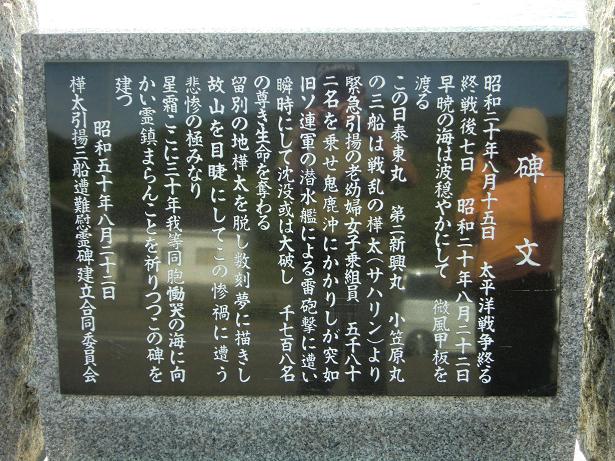 碑文
昭和二十年八月十五日　太平洋戦争終る
終戦後七日　昭和二十年八月二十二日
早暁の海は波穏やかにして　微風甲板を
渡る
この日泰東丸　第二新興丸　小笠原丸
の三船は戦乱の樺太（サハリン）より
緊急引揚の老幼婦女子乗組員　五千八十
二名を乗せ鬼鹿沖にかかりしが突如
旧ソ連軍の潜水艦による雷砲撃に遭い
瞬時にして沈没或は大破し　千七百八名
の尊き生命を奪わる
留別の地樺太を脱し数刻夢に描きし
故山を目睫にしてこの惨禍に遭う
悲惨の極みなり
星霜ここに三十年我等同胞慟哭の海に向
かい霊鎮まらんことを祈りつつこの碑を
建つ
昭和五十年八月二十二日
樺太引揚三船遭難慰霊碑建立合同委員会